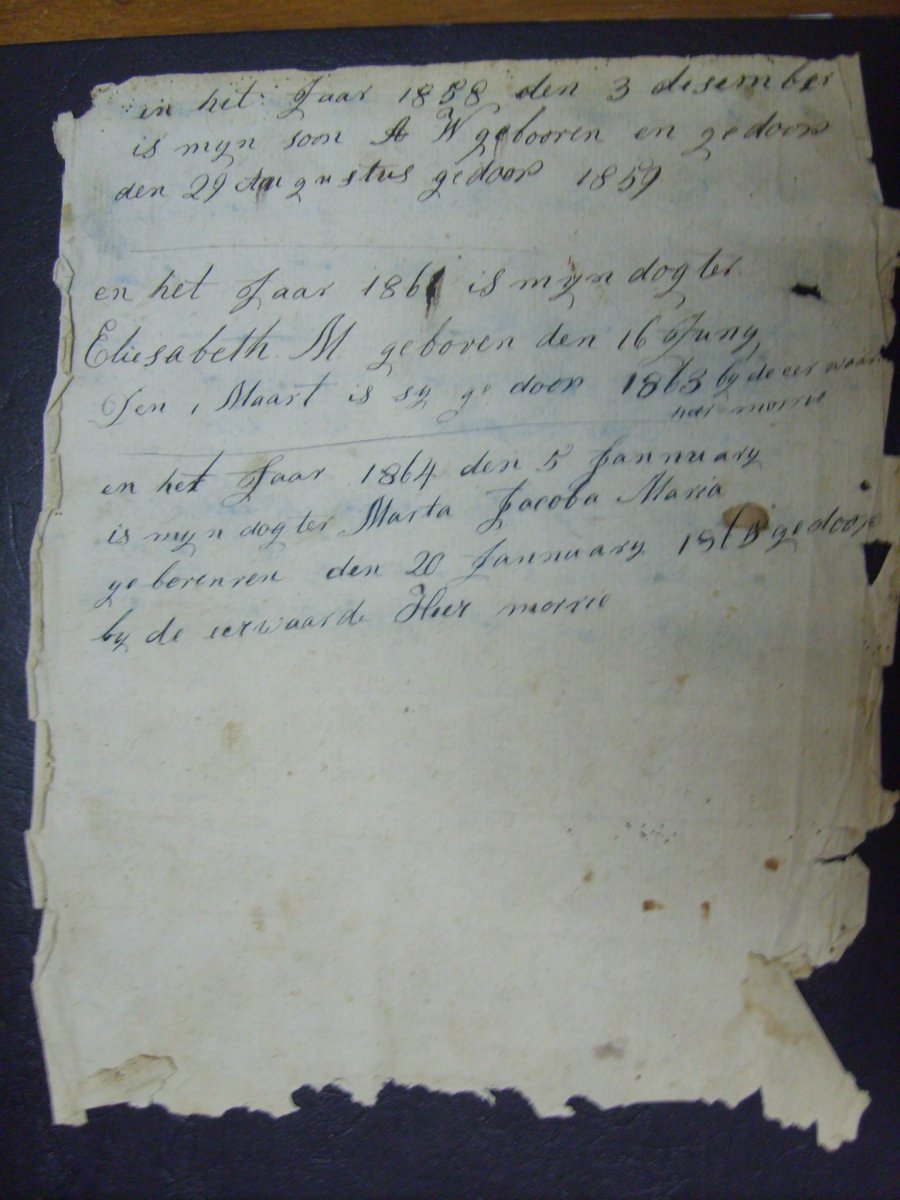 en het Jaar 1858 den 3 desember
is myn soon A W gebooren en gedoop
den 29 Augustus gedoop 1859
en het Jaar 1861 is myn dogter
Eliesabeth M geboren den 16 Juny
Den 1 Maart is sy ge doop 1863 by de eer waar
heer morrie
en het Jaar 1864 den 5 Jannuary
is myn dogter Marta Jacoba Maria
geberenren den 20 Jannuary gedoop
by de eerwaarde Heer morrie